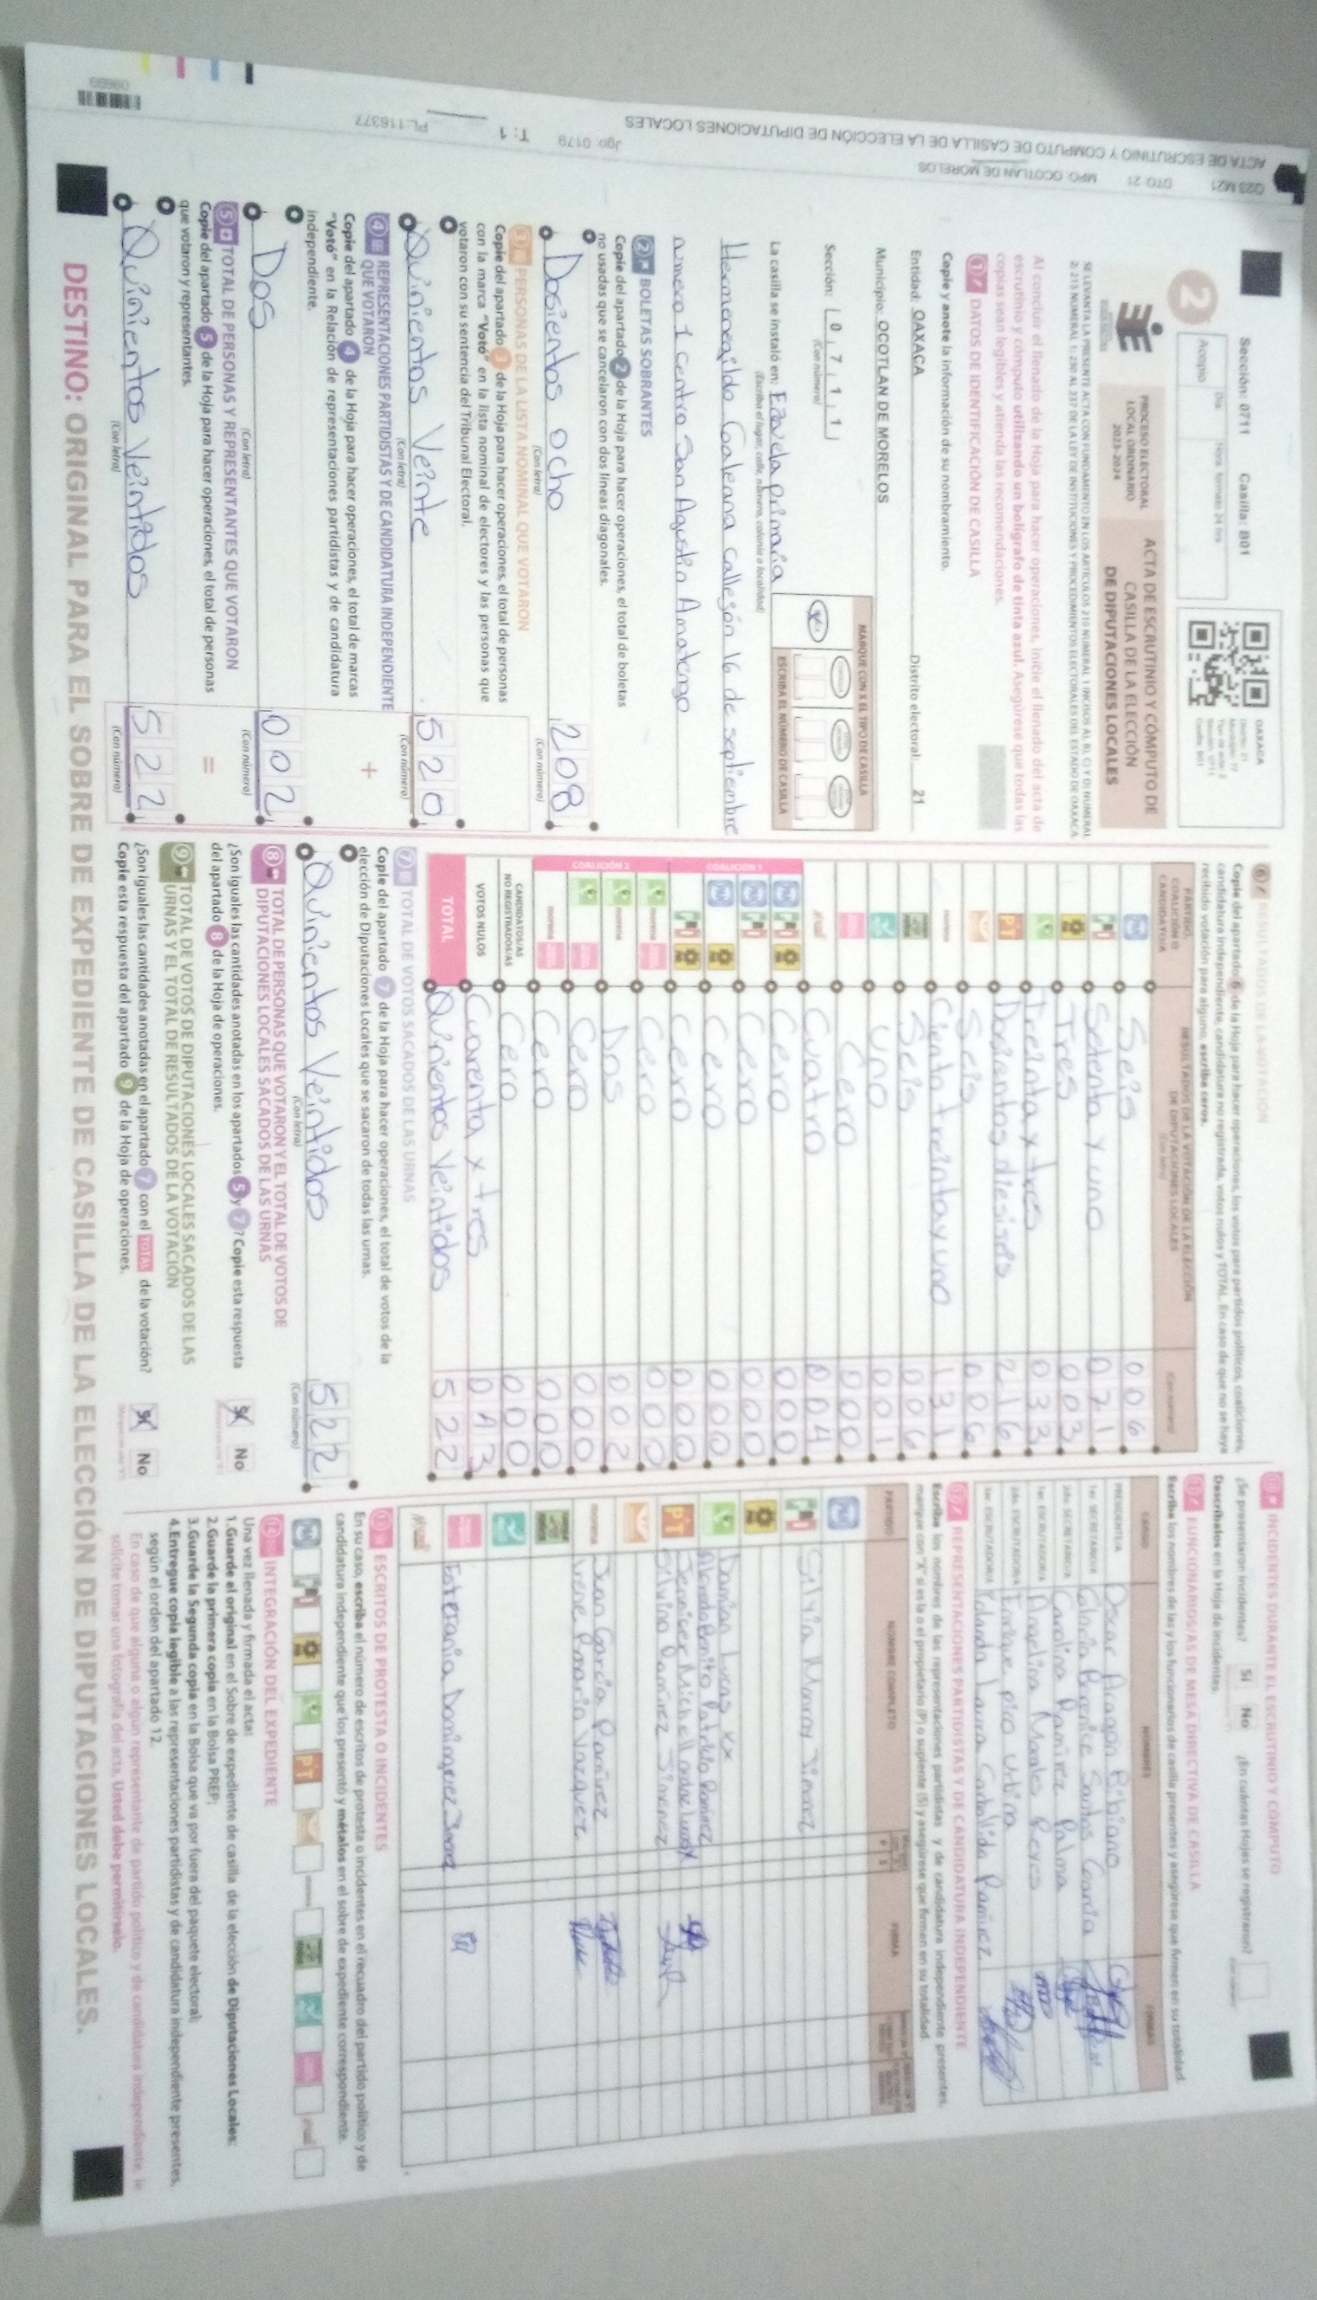 Sección: 0711 Casilla: B01
OAXACA
2
Acopio
Día
Hora, formato 24 hrs
PROCESO ELECTORAL
LOCAL ORDINARIO
2023-2024
ACTA DE ESCRUTINIO Y CÓMPUTO DE
CASILLA DE LA ELECCIÓN
DE DIPUTACIONES LOCALES
Al concluir el llenado de la Hoja para hacer operaciones, inicie el llenado del acta de
escrutinio y cómputo utilizando un bolígrafo de tinta azul. Asegúrese que todas las
copias sean legibles y atienda las recomendaciones.
1 DATOS DE IDENTIFICACIÓN DE CASILLA
Copie y anote la información de su nombramiento.
Entidad: OAXACA Distrito electoral: 21
Municipio: OCOTLÁN DE MORELOS
Sección: 0 7 1 1
(Con número)
MARQUE CON X EL TIPO DE CASILLA
ESCRIBA EL NÚMERO DE CASILLA
La casilla se instaló en: Escuela primaria
(Escriba el lugar, calle, número, colonia o localidad)
Hermenegildo Galeana Callesón 16 de septiembre
número 1 centro San Agustin Amatengo
2 BOLETAS SOBRANTES
Copie del apartado 2 de la Hoja para hacer operaciones, el total de boletas
no usadas que se cancelaron con dos líneas diagonales.
Dosientos ocho 208
(Con letra) (Con número)
3 PERSONAS DE LA LISTA NOMINAL QUE VOTARON
Copie del apartado 3 de la Hoja para hacer operaciones, el total de personas
con la marca "Votó" en la lista nominal de electores y las personas que
votaron con su sentencia del Tribunal Electoral.
Quinientos Veinte 520
(Con letra) (Con número)
4 REPRESENTACIONES PARTIDISTAS Y DE CANDIDATURA INDEPENDIENTE
QUE VOTARON
Copie del apartado 4 de la Hoja para hacer operaciones, el total de marcas
"Votó" en la Relación de representaciones partidistas y de candidatura
independiente.
+
Dos 002
(Con letra) (Con número)
5 TOTAL DE PERSONAS Y REPRESENTANTES QUE VOTARON
Copie del apartado 5 de la Hoja para hacer operaciones, el total de personas
que votaron y representantes.
=
Quinientos Veintidos 522
(Con letra) (Con número)
6 RESULTADOS DE LA VOTACIÓN
Copie del apartado 6 de la Hoja para hacer operaciones, los votos para partidos políticos, coaliciones,
candidatura independiente, candidatura no registrada, votos nulos y TOTAL. En caso de que no se haya
recibido votación para alguno, escriba ceros.
PARTIDO,
COALICIÓN O
CANDIDATURA
RESULTADOS DE LA VOTACIÓN DE LA ELECCIÓN
DE DIPUTACIONES LOCALES
(Con letra)
(Con número)
Seis 006
Setenta y uno 071
Tres 003
Treinta y tres 033
PT Docientos diesiseis 216
Seis 006
morena Ciento treinta y uno 131
Seis 006
Uno 001
Cero 000
Cuatro 004
COALICIÓN 1
Cero 000
Cero 000
Cero 000
Cero 000
COALICIÓN 2
morena Cero 000
morena Dos 002
Cero 000
morena Cero 000
CANDIDATOS/AS
NO REGISTRADOS/AS Cero 000
VOTOS NULOS Cuarenta y tres 043
TOTAL Quinientos Veintidos 522
7 TOTAL DE VOTOS SACADOS DE LAS URNAS
Copie del apartado 7 de la Hoja para hacer operaciones, el total de votos de la
elección de Diputaciones Locales que se sacaron de todas las urnas.
Quinientos Veintidos 522
(Con letra) (Con número)
8 TOTAL DE PERSONAS QUE VOTARON Y EL TOTAL DE VOTOS DE
DIPUTACIONES LOCALES SACADOS DE LAS URNAS
¿Son iguales las cantidades anotadas en los apartados 5 y 7? Copie esta respuesta
del apartado 8 de la Hoja de operaciones.
Sí No
9 TOTAL DE VOTOS DE DIPUTACIONES LOCALES SACADOS DE LAS
URNAS Y EL TOTAL DE RESULTADOS DE LA VOTACIÓN
¿Son iguales las cantidades anotadas en el apartado 7 con el TOTAL de la votación?
Copie esta respuesta del apartado 9 de la Hoja de operaciones.
Sí No
10 INCIDENTES DURANTE EL ESCRUTINIO Y CÓMPUTO
¿Se presentaron incidentes? Sí No ¿En cuántas Hojas se registraron?
Descríbalos en la Hoja de incidentes.
11 FUNCIONARIOS/AS DE MESA DIRECTIVA DE CASILLA
Escriba los nombres de las y los funcionarios de casilla presentes y asegúrese que firmen en su totalidad.
CARGO NOMBRES FIRMAS
PRESIDENTE/A Oscar Aragon Bibiano
1er. SECRETARIO/A Gloria Berenice Santos Garcia
2do. SECRETARIO/A Carolina Ramirez Palma
1er. ESCRUTADOR/A Amelina Morales Reyes
2do. ESCRUTADOR/A Enrique pico Urbina
3er. ESCRUTADOR/A Yolanda Laura Carballido Ramirez
12 REPRESENTACIONES PARTIDISTAS Y DE CANDIDATURA INDEPENDIENTE
Escriba los nombres de las representaciones partidistas y de candidatura independiente presentes,
marque con "X" si es la o el propietario (P) o suplente (S) y asegúrese que firmen en su totalidad.
PARTIDO NOMBRE COMPLETO FIRMA
Silvia Monroy Jimenez
Damian Lucas
PT Silvino Ramirez Jimenez
morena Juan Garcia Ramirez
Irene Rosario Vasquez
Estefania Dominguez Juarez
13 ESCRITOS DE PROTESTA O INCIDENTES
En su caso, escriba el número de escritos de protesta o incidentes en el recuadro del partido político y de
candidatura independiente que los presentó y métalos en el sobre de expediente correspondiente.
14 INTEGRACIÓN DEL EXPEDIENTE
Una vez llenada y firmada el acta:
1.Guarde el original en el Sobre de expediente de casilla de la elección de Diputaciones Locales;
2.Guarde la primera copia en la Bolsa PREP;
3.Guarde la Segunda copia en la Bolsa que va por fuera del paquete electoral;
4.Entregue copia legible a las representaciones partidistas y de candidatura independiente presentes,
según el orden del apartado 12.
En caso de que alguna o algún representante de partido político y de candidatura independiente, le
solicite tomar una fotografía del acta, Usted debe permitírselo.
DESTINO: ORIGINAL PARA EL SOBRE DE EXPEDIENTE DE CASILLA DE LA ELECCIÓN DE DIPUTACIONES LOCALES.
ACTA DE ESCRUTINIO Y COMPUTO DE CASILLA DE LA ELECCIÓN DE DIPUTACIONES LOCALES
DTO: 21 MPO: OCOTLAN DE MORELOS
T: 1
PL:116377